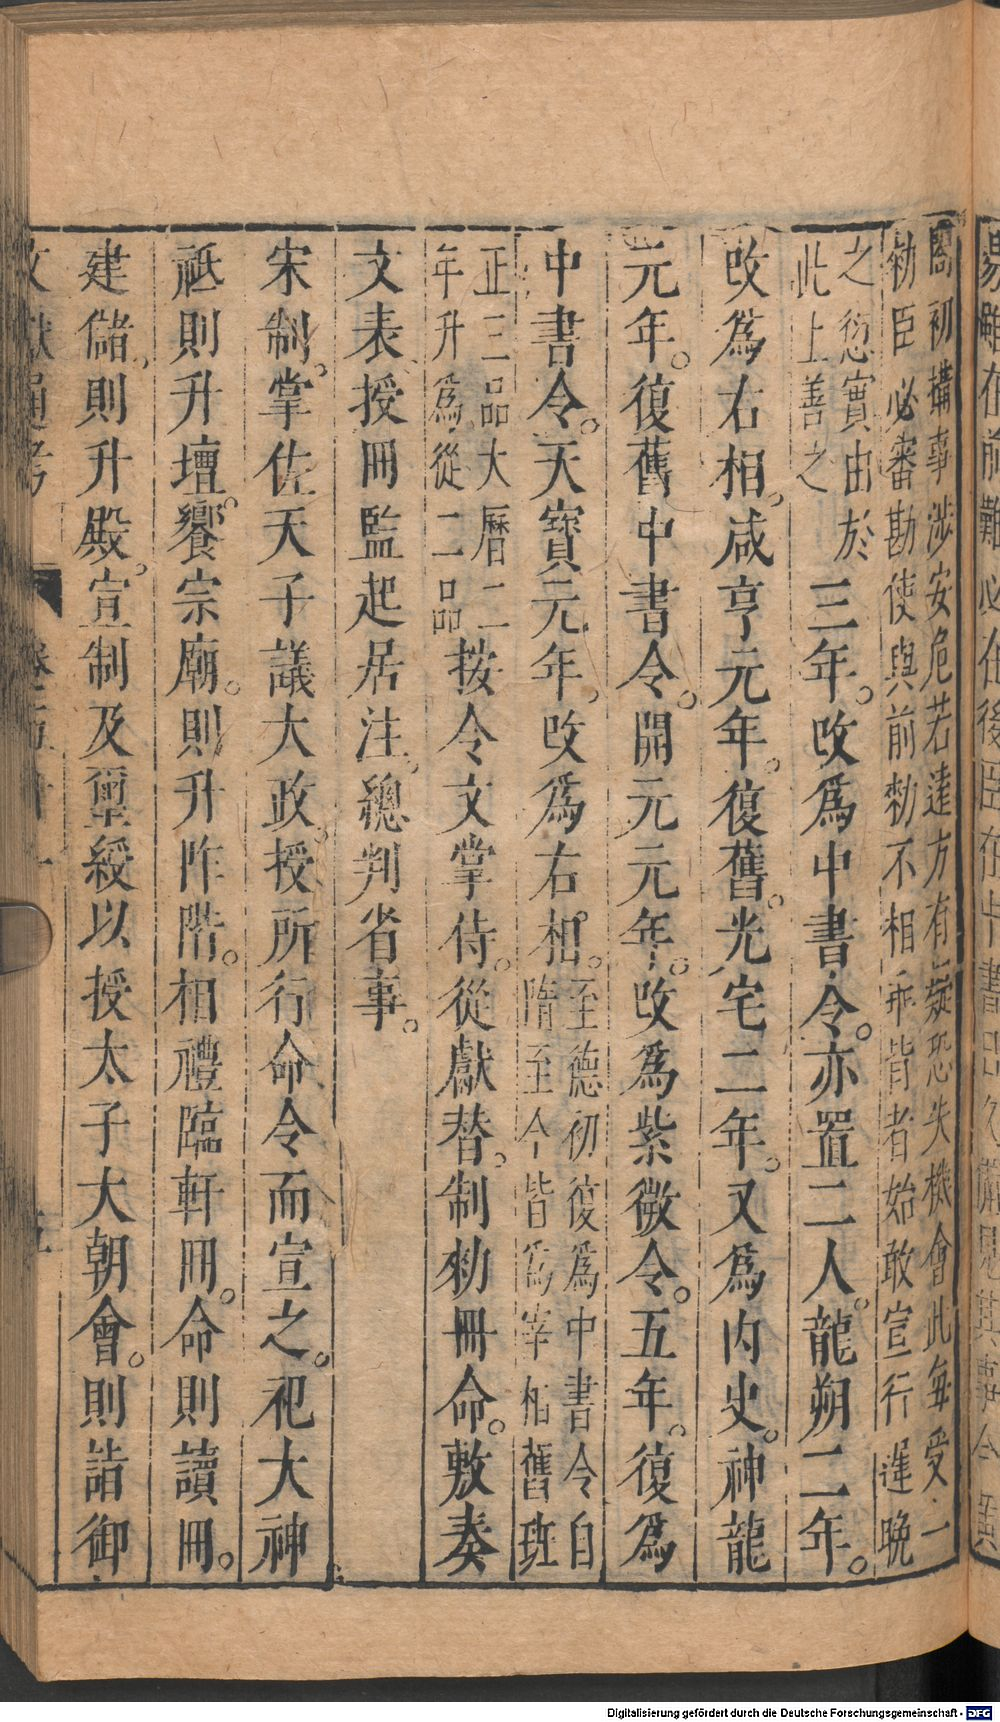 閣初搆事涉安危若違方有疑恐失機會此每受一
勑臣必審勘使與前勑不相乖背者始敢宣行遲晚
之愆實由於
此上善之
三年。改爲中書令。亦置二人。龍朔二年。
改爲右相。咸亨元年。復舊。光宅二年。又爲內史。神龍
元年。復舊中書令。開元元年。改爲紫微令。五年。復爲
中書令。天寶元年。改爲右相。
至德初復爲中書令自
隋至今皆爲宰相舊班
正三品大曆二
年升爲從二品
按令文掌侍從獻替。制勑冊命。敷奏
文表授冊監起居注。總判省事。
宋制。掌佐天子議大政。授所行命令而宣之。祀大神
祇則升壇。饗宗廟。則升阼階。相禮臨軒冊。命則讀冊。
建儲。則升殿。宣制及璽綬以授太子大朝會。則詣御
文獻通考
五
Digitalisierung gefördert durch die Deutsche Forschungsgemeinschaft - DFG